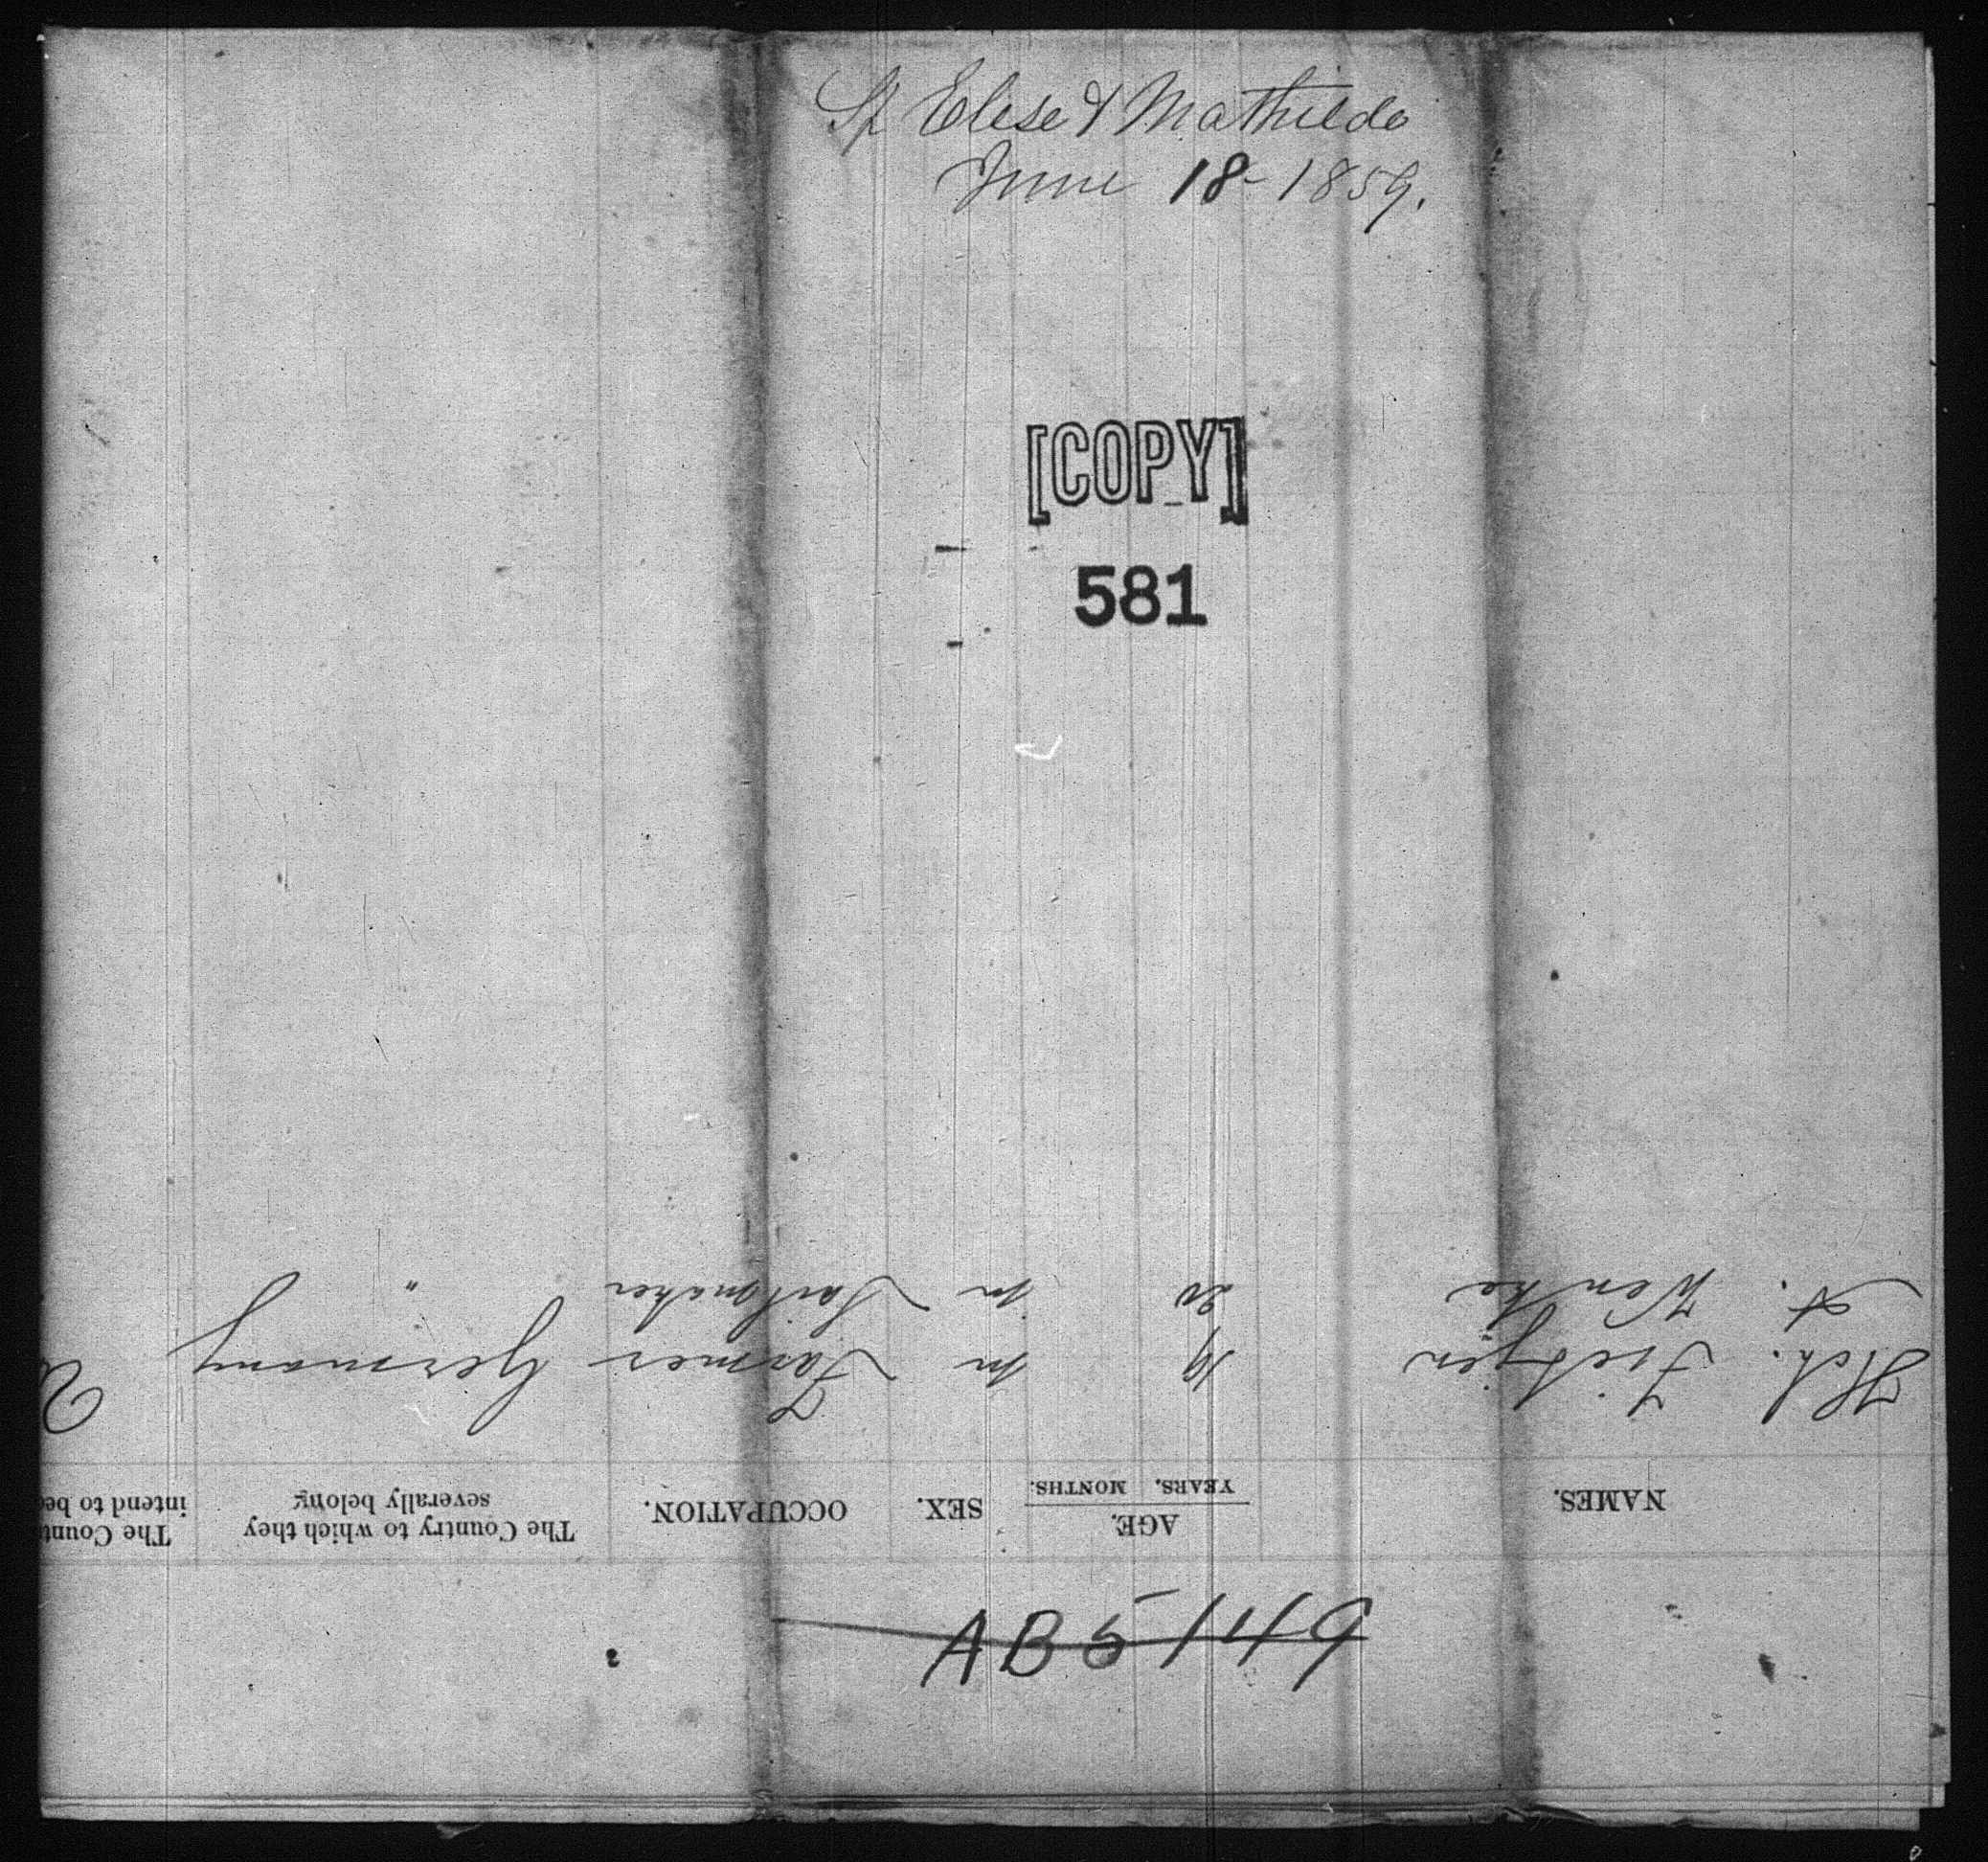 Sp Elise & Mathilde
June 18 - 1859.
[COPY]
581
AB5149
NAMES.
AGE.
YEARS. MONTHS.
SEX.
OCCUPATION.
The Country to which they
severally belong
The Count
intend to be
Hch. Tietjen 19 m Farmer Germany
A. Wenke 20 m Sailmaker "